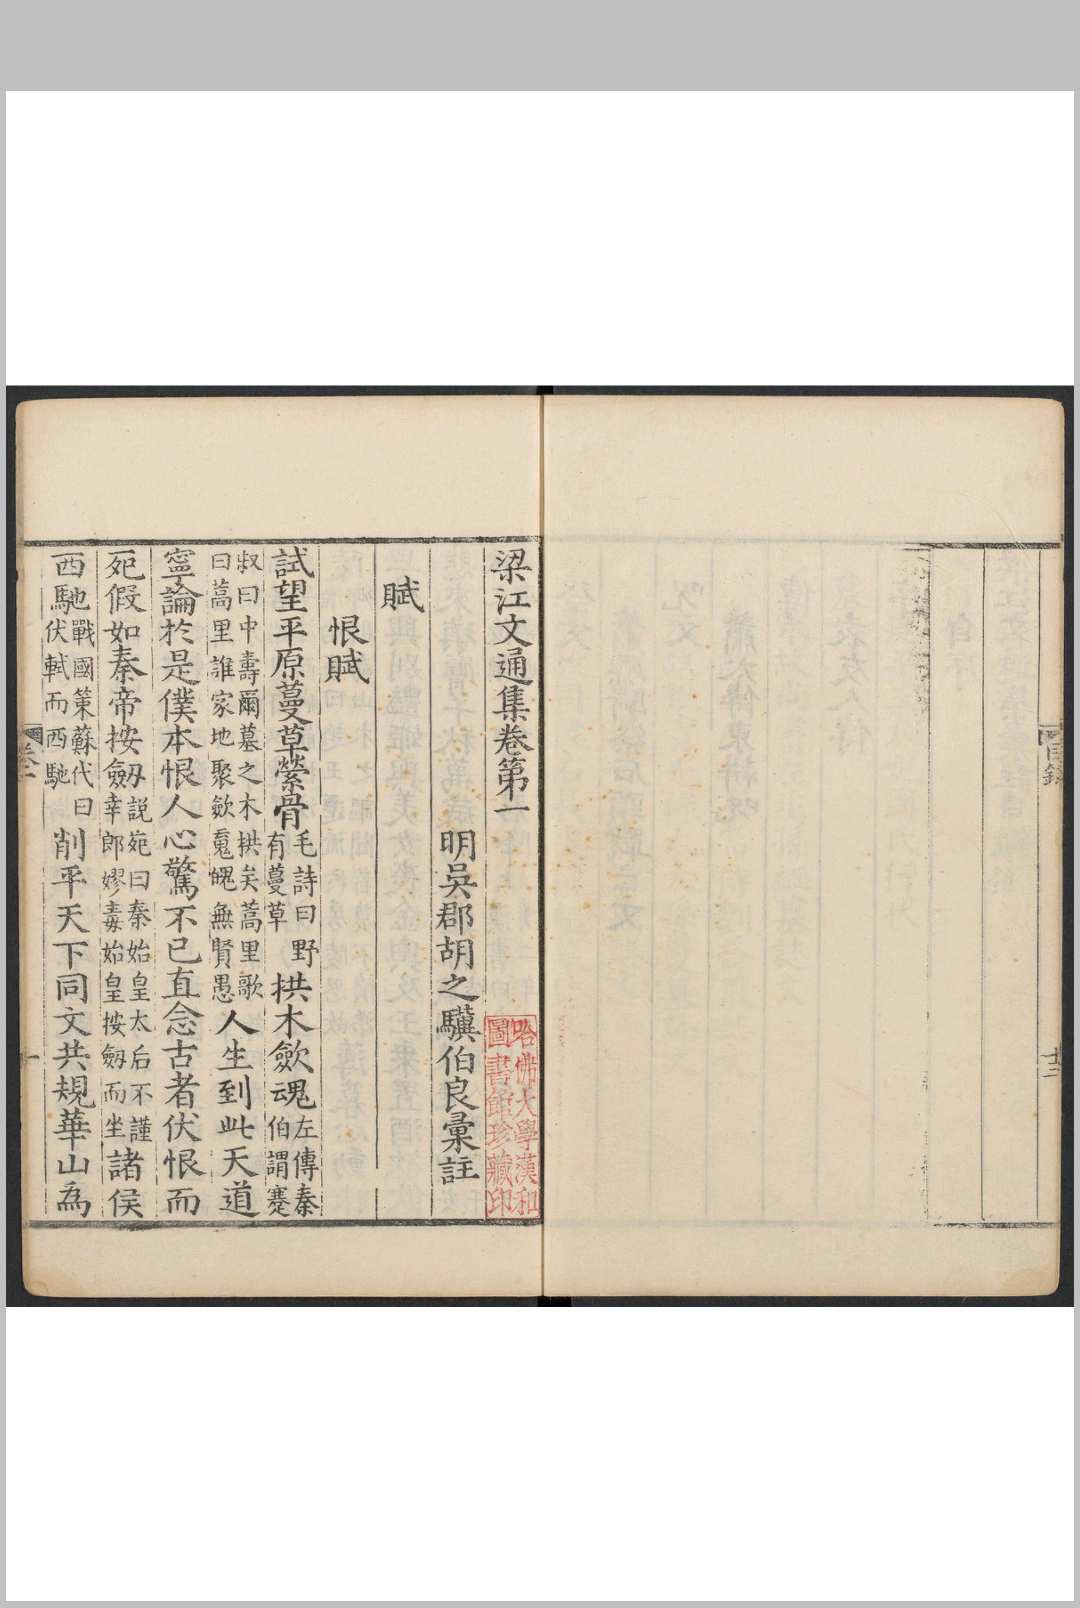 目錄
廿二
梁江文通集卷第一
明吳郡胡之驥伯良彙註
賦
恨賦
試望平原蔓草縈骨毛詩曰野有蔓草拱木歛魂左傳秦伯謂蹇
叔曰中壽爾墓之木拱矣蒿里歌曰蒿里誰家地聚歛䰟魄無賢愚人生到此天道
寧論於是僕本恨人心驚不已直念古者伏恨而
死假如秦帝按劒說苑曰秦始皇太后不謹幸郎嫪毐始皇按劒而坐諸侯
西馳戰國策蘇代曰伏軾而西馳削平天下同文共規華山為
卷一
一
哈佛大學漢和圖書館珍藏印